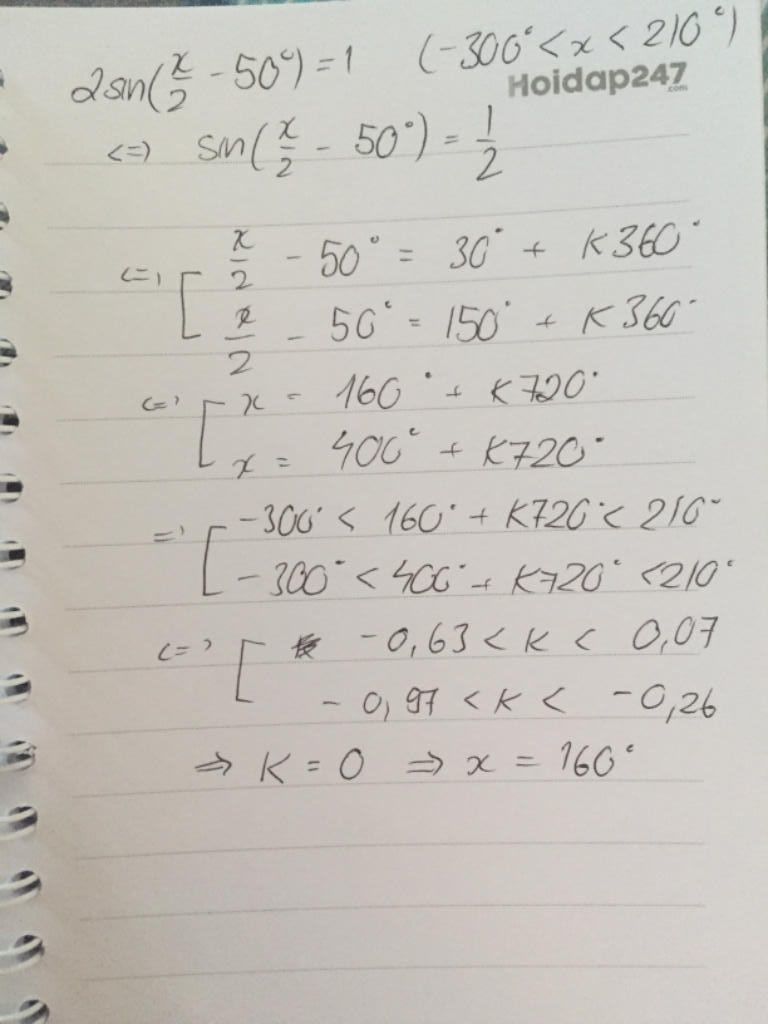 2sin(x/2 - 50°) = 1 (-300° < x < 210°)
Hoidap247.com
<=> sin(x/2 - 50°) = 1/2
<=> [ x/2 - 50° = 30° + K360°
x/2 - 50° = 150° + K360°
<=> [ x = 160° + K720°
x = 400° + K720°
=> [ -300° < 160° + K720° < 210°
-300° < 400° + K720° < 210°
<=> [ -0,63 < K < 0,07
-0,97 < K < -0,26
=> K = 0 => x = 160°